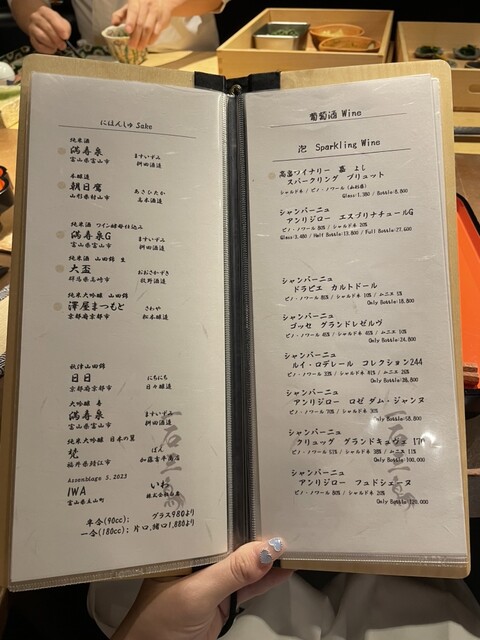 にほんしゅ Sake
純米酒
満寿泉
富山県富山市
ますいずみ
桝田酒造
本醸造
朝日鷹
山形県村山市
あさひたか
高木酒造
純米酒 ワイン酵母仕込み
満寿泉G
富山県富山市
ますいずみ
桝田酒造
純米酒 山田錦 生
大盃
群馬県高崎市
おおさかずき
牧野酒造
純米大吟醸 山田錦
澤屋まつもと
京都府京都市
さわや
松本酒造
秋津山田錦
日日
京都府京都市
にちにち
日々醸造
大吟醸 寿
満寿泉
富山県富山市
ますいずみ
桝田酒造
純米大吟醸 日本の翼
梵
福井県鯖江市
ぼん
加藤吉平商店
Assemblage 5, 2023
IWA
富山県立山町
いわ
株式会社白岩
半合(90cc); グラス980より
一合(180cc); 片口,猪口1,880より
葡萄酒 Wine
泡 Sparkling Wine
高畠ワイナリー 嘉 よし
スパークリング ブリュット
シャルドネ / ピノ・ノワール
Glass:1,380 / Bottle:8,800
シャンパーニュ
アンリジロー エスプリナチュールG
ピノ・ノワール 80% / シャルドネ 20%
Glass:3,480 / Half Bottle:13,800 / Full Bottle:27,600
シャンパーニュ
ドラピエ カルトドール
ピノ・ノワール 80% / シャルドネ 10% / ムニエ 5%
Only Bottle:18,800
シャンパーニュ
ゴッセ グランドレゼルヴ
ピノ・ノワール 45% / シャルドネ 45% / ムニエ 10%
Only Bottle:24,800
シャンパーニュ
ルイ・ロデレール コレクション244
Only Bottle:38,800
シャンパーニュ
アンリジロー ロゼ ダム・ジャンヌ
ピノ・ノワール 70% / シャルドネ 30%
Only Bottle:58,800
シャンパーニュ
クリュッグ グランドキュヴェ
Only Bottle:100,000
シャンパーニュ
アンリジロー フュドシェーヌ
ピノ・ノワール 80% / シャルドネ 20%